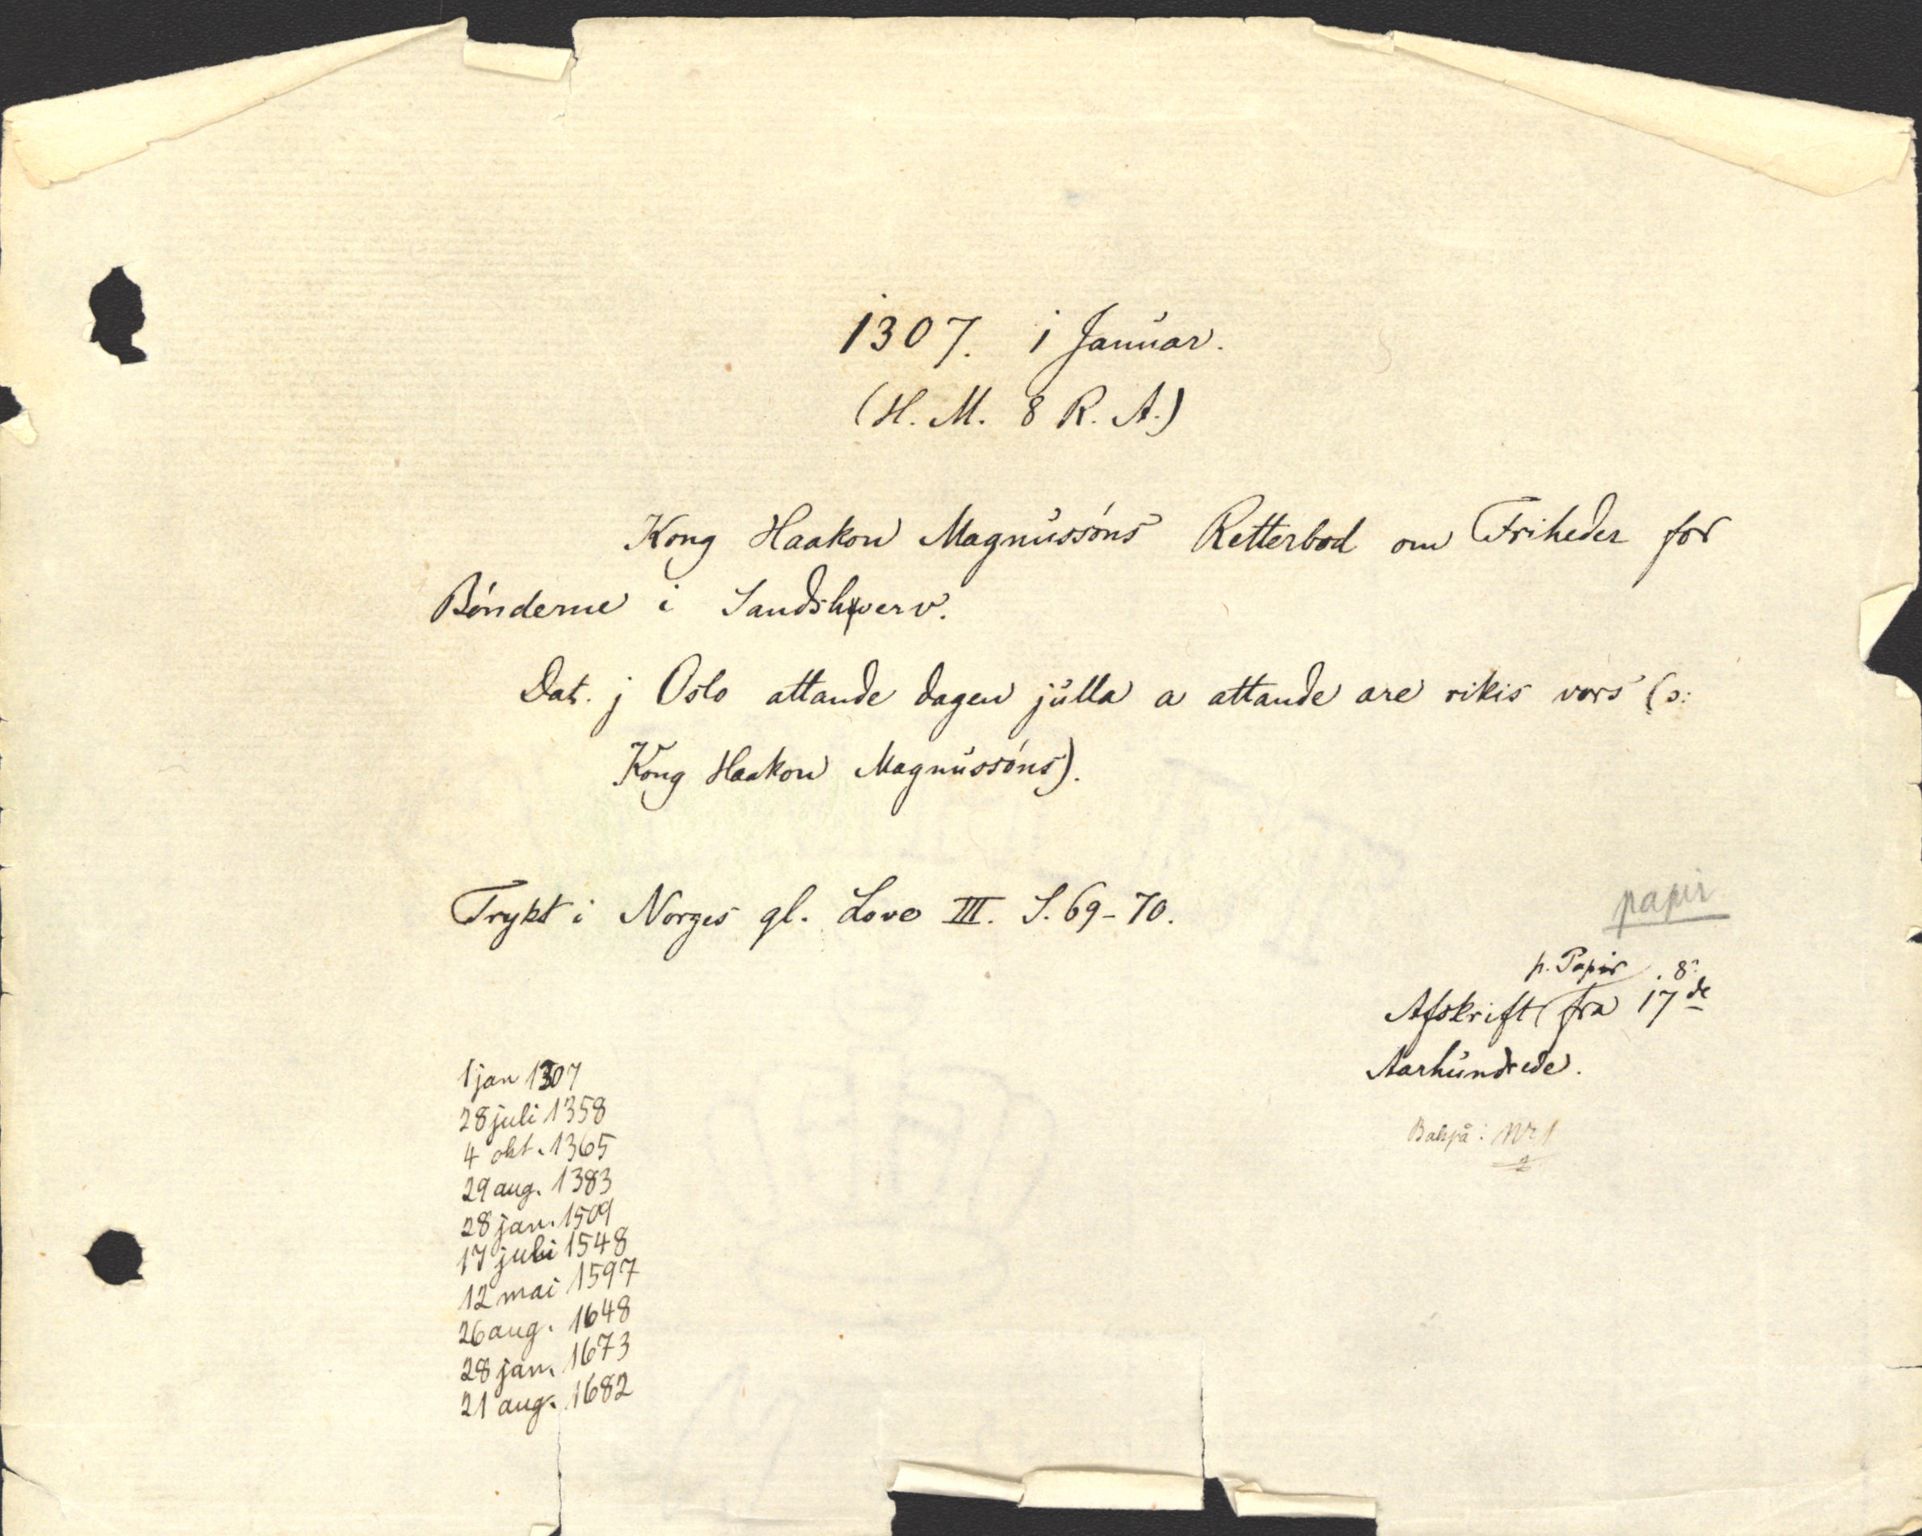 1307. 1 Januar.
(H. M. 8 R. A.)
Kong Haakon Magnussöns Retterbod om Friheder for
Bönderne i Sandshverv.
Dat. j Oslo attande dagen julla a attande are rikis vars (ɔ:
Kong Haakon Magnussöns).
Trykt i Norges gl. Love III. S. 69-70.
papir
p. Papir
Afskrift fra 17de
Aarhundrede.
Bakpå: Nr 1
1 jan 1307
28 juli 1358
4 okt. 1365
29 aug. 1383
28 jan. 1509
17 juli 1548
12 mai 1597
26 aug. 1648
28 jan. 1673
21 aug. 1682